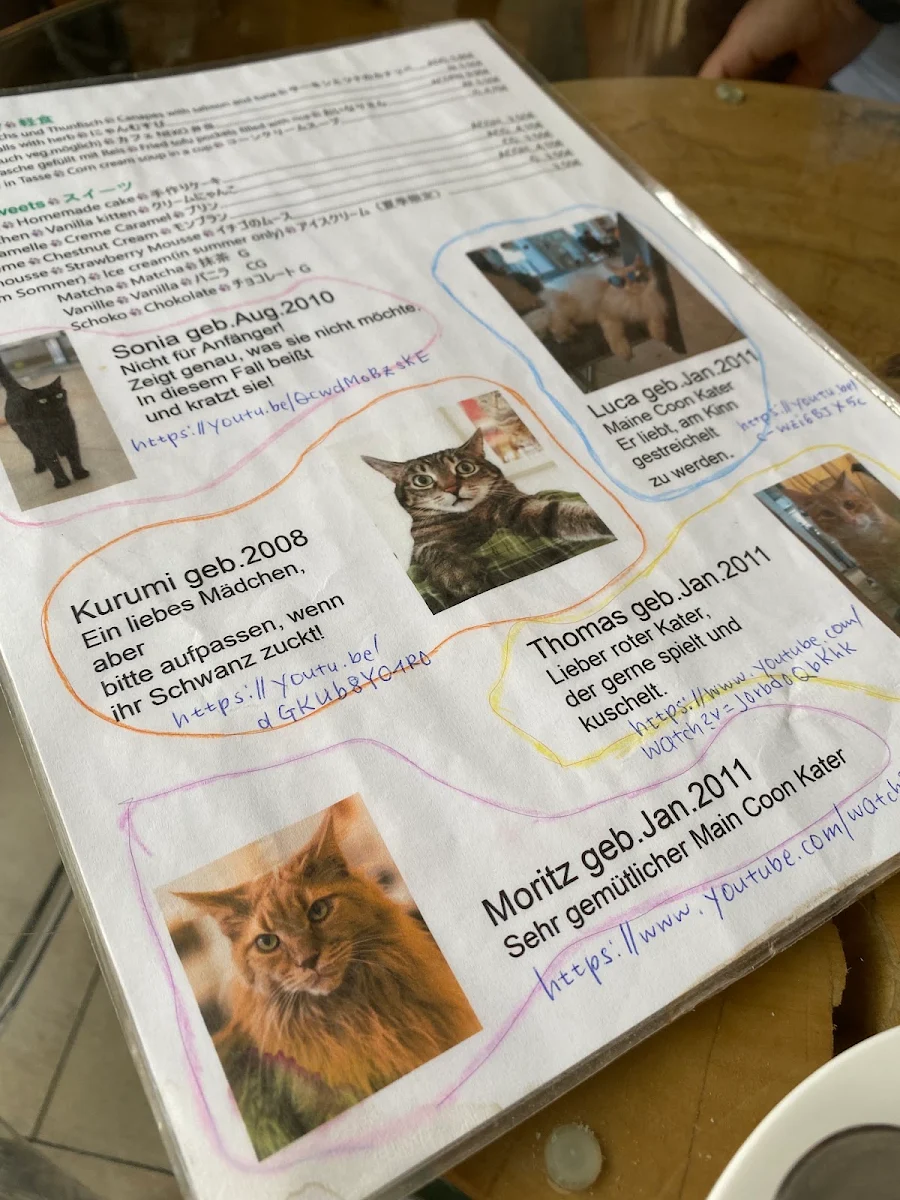 軽食
und Thunfisch Canapes with salmon and tuna サーモンとツナのカナッペ
with herb にゃんむすび
veg.möglich) カフェ NEKO 弁当
gefüllt mit Reis Fried tofu pockets filled with rice おいなりさん
in Tasse Corn cream soup in a cup コーンクリームスープ
スイーツ
Homemade cake 手作りケーキ
Vanilla kitten クリームにゃんこ
Creme Caramel プリン
Chestnut Cream モンブラン
Strawberry Mousse イチゴのムース
Sommer) Ice cream(in summer only) アイスクリーム (夏季限定)
Matcha Matcha 抹茶 G
Vanille Vanilla バニラ CG
Schoko Chokolate チョコレート G
Sonia geb.Aug.2010
Nicht für Anfänger!
Zeigt genau, was sie nicht möchte.
In diesem Fall beißt
und kratzt sie!
https://youtu.be/QcwdMoBzskE
Luca geb.Jan.2011
Maine Coon Kater
Er liebt, am Kinn
gestreichelt
zu werden.
https://youtu.be/
Kurumi geb.2008
Ein liebes Mädchen,
aber
bitte aufpassen, wenn
ihr Schwanz zuckt!
https://youtu.be/
dGKUb8YO4R0
Thomas geb.Jan.2011
Lieber roter Kater,
der gerne spielt und
kuschelt.
https://www.youtube.com/
watch?v=JorbdoQbKhk
Moritz geb.Jan.2011
Sehr gemütlicher Main Coon Kater
https://www.youtube.com/watch?